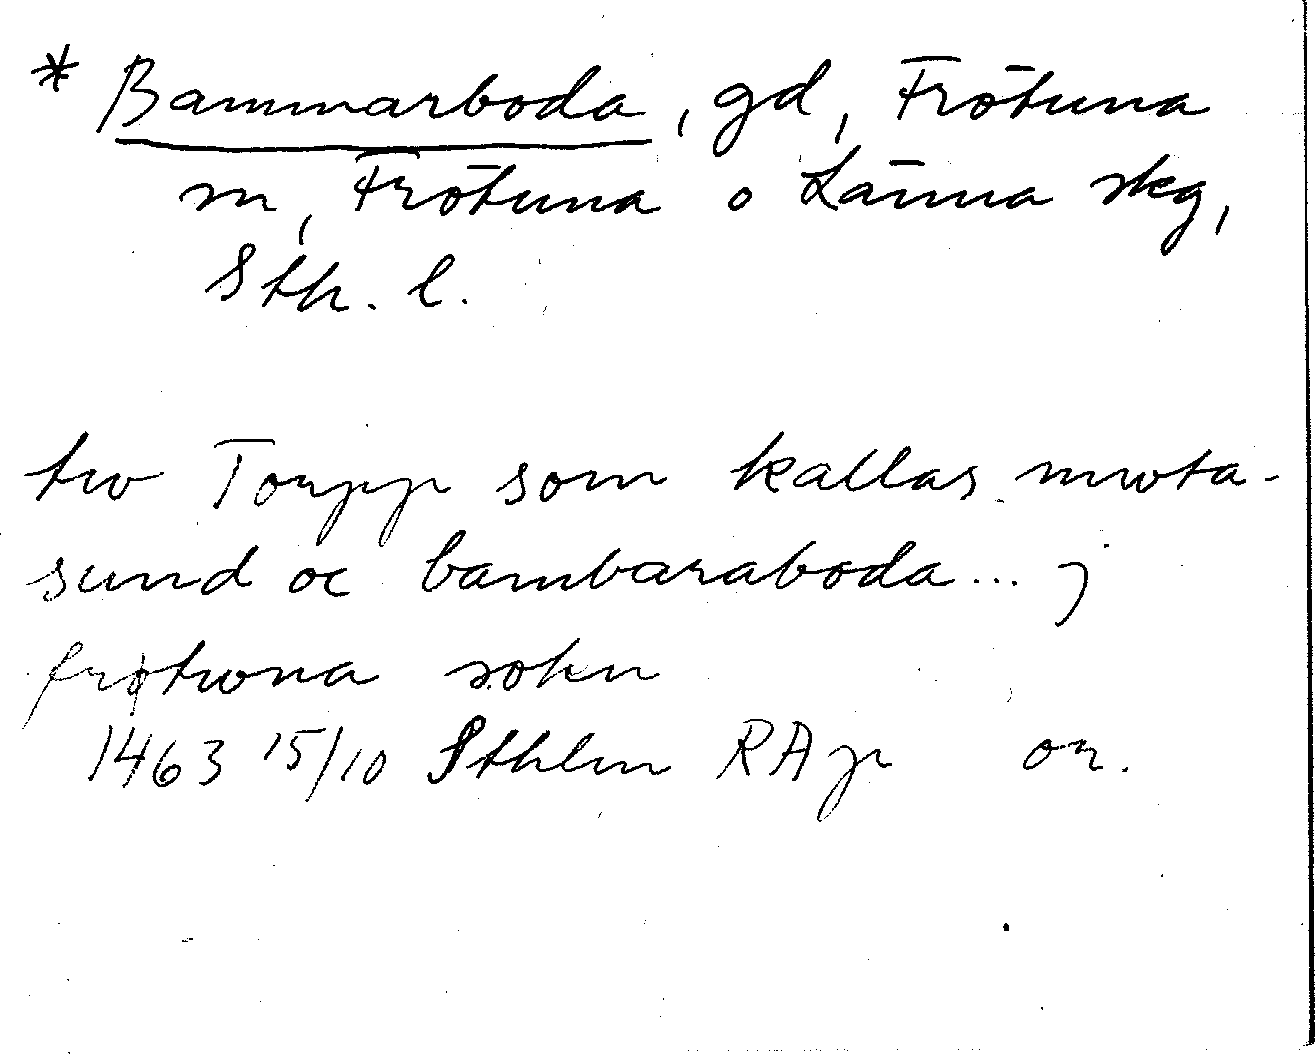 * Bammarboda, gd, Frötuna
sn, Frötuna o Länna skg,
Sth. l.
tw Torpp som kallas mwta-
sund oc bambaraboda... j
frøtwna sokn
1463 15/10 Sthlm RAp or.